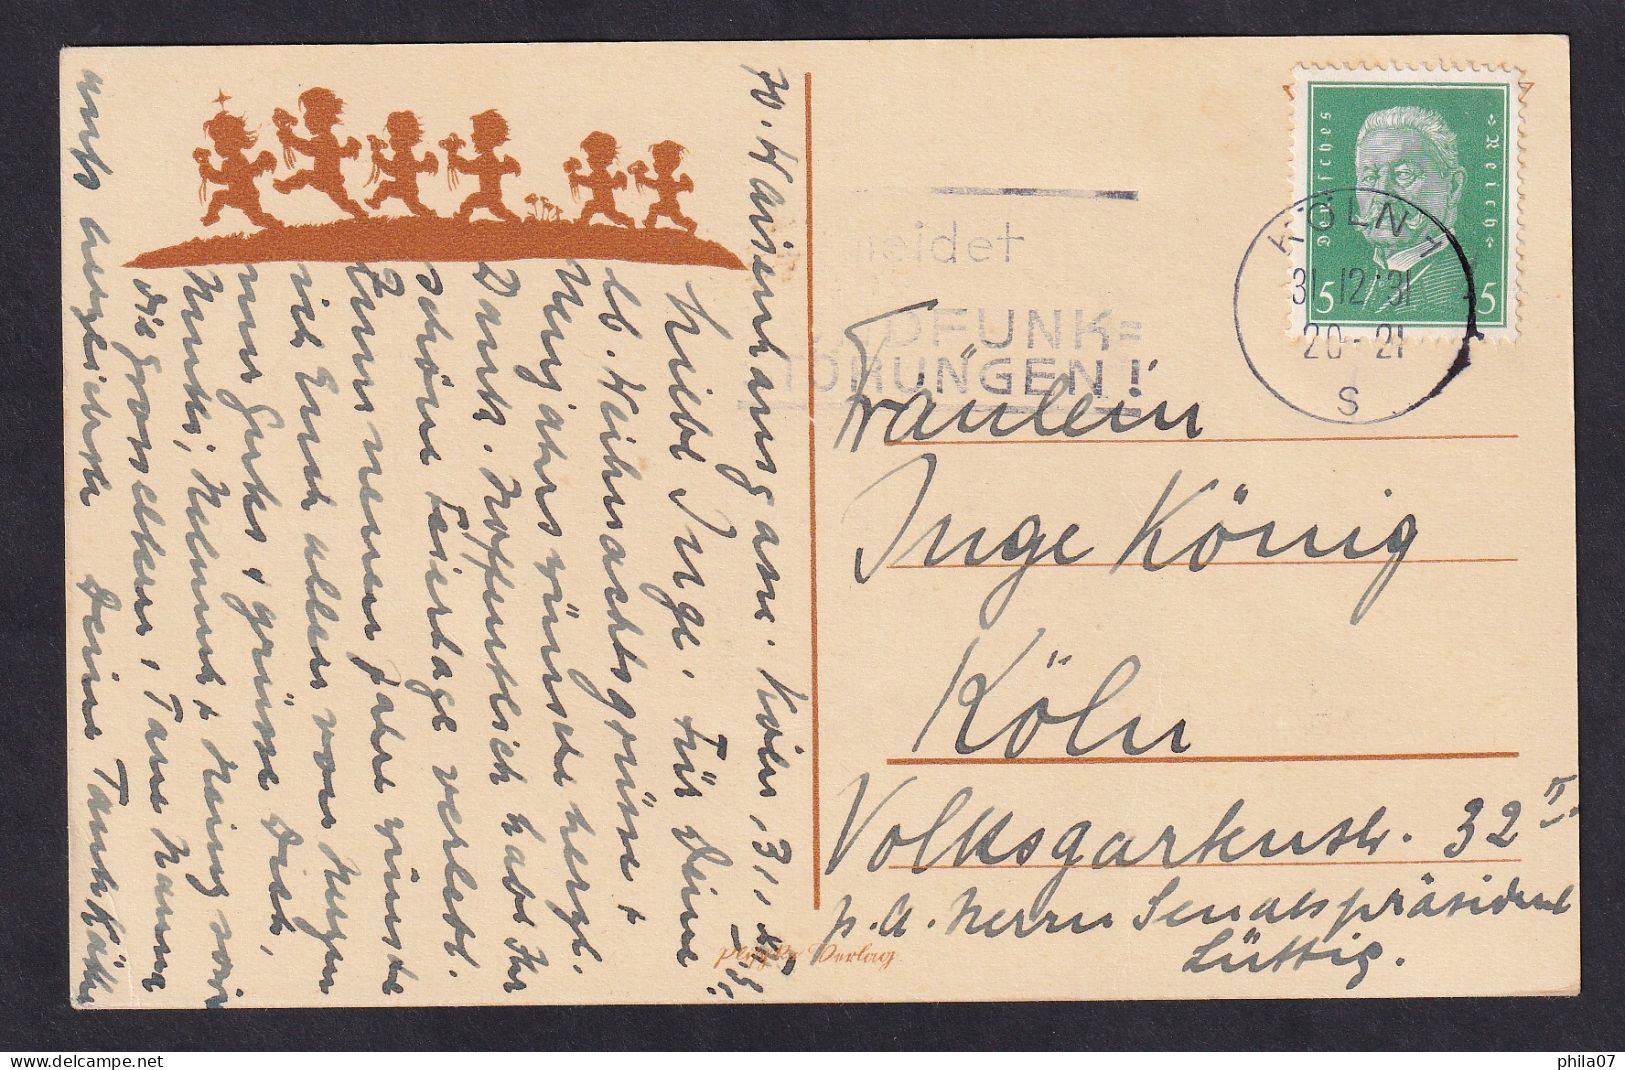 Waisenhausgasse. Köln, 31.12.31
Liebe Inge. Für Deine
lb. Weihnachtsgrüsse +
Neujahrswünsche herzl.
Dank. Hoffentlich habt Ihr
schöne Feiertage verlebt.
Zum neuen Jahre wünsche
ich Euch alles von Herzen
nur Gutes + grüsse Dich,
Mutti, Helmut + Heinz sowie
die Grosseltern, Tante Hanna
aufs herzlichste Deine Tante Käthe
Deutsches Reich
5 5
KÖLN 1
31.12.31
20-21
S
meidet
RUNDFUNK=
STÖRUNGEN!
Fräulein
Inge König
Köln
Volksgartenstr. 32 II.
p. A. Herrn Senatspräsident
Lüttig.
Verlag
phila07